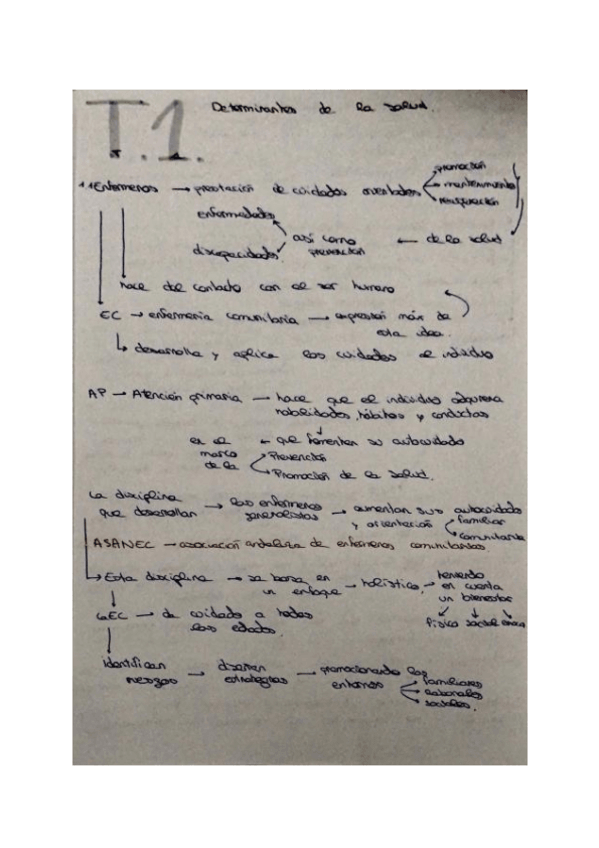 T.1. Determinantes de la salud.
1.1 Enfermeros → prestación de cuidados orientados
promoción
mantenimiento
recuperación
enfermedades
así como prevención ← de la salud
discapacidades
nace del contacto con el ser humano
EC → enfermería comunitaria → expresión más de
esta idea.
↳ desarrolla y aplica los cuidados al individuo
AP → Atención primaria → hace que el individuo adquiera
habilidades, hábitos y conductas
en el marco de la ← que fomenten su autocuidado
Prevención
Promoción de la salud.
La disciplina
que desarrollan → los enfermeros
generalistas → aumentan sus autocuidados
y orientación
familiar
comunitaria
ASANEC → asociación andaluza de enfermeros comunitarios
↳ Esta disciplina → se basa en
un enfoque → holístico → teniendo
en cuenta
un bienestar
físico social
→ da cuidado a todas
las edades.
identifican
riesgos → diseñan
estrategias → promocionando los
entornos
familiares
laborales
sociales.